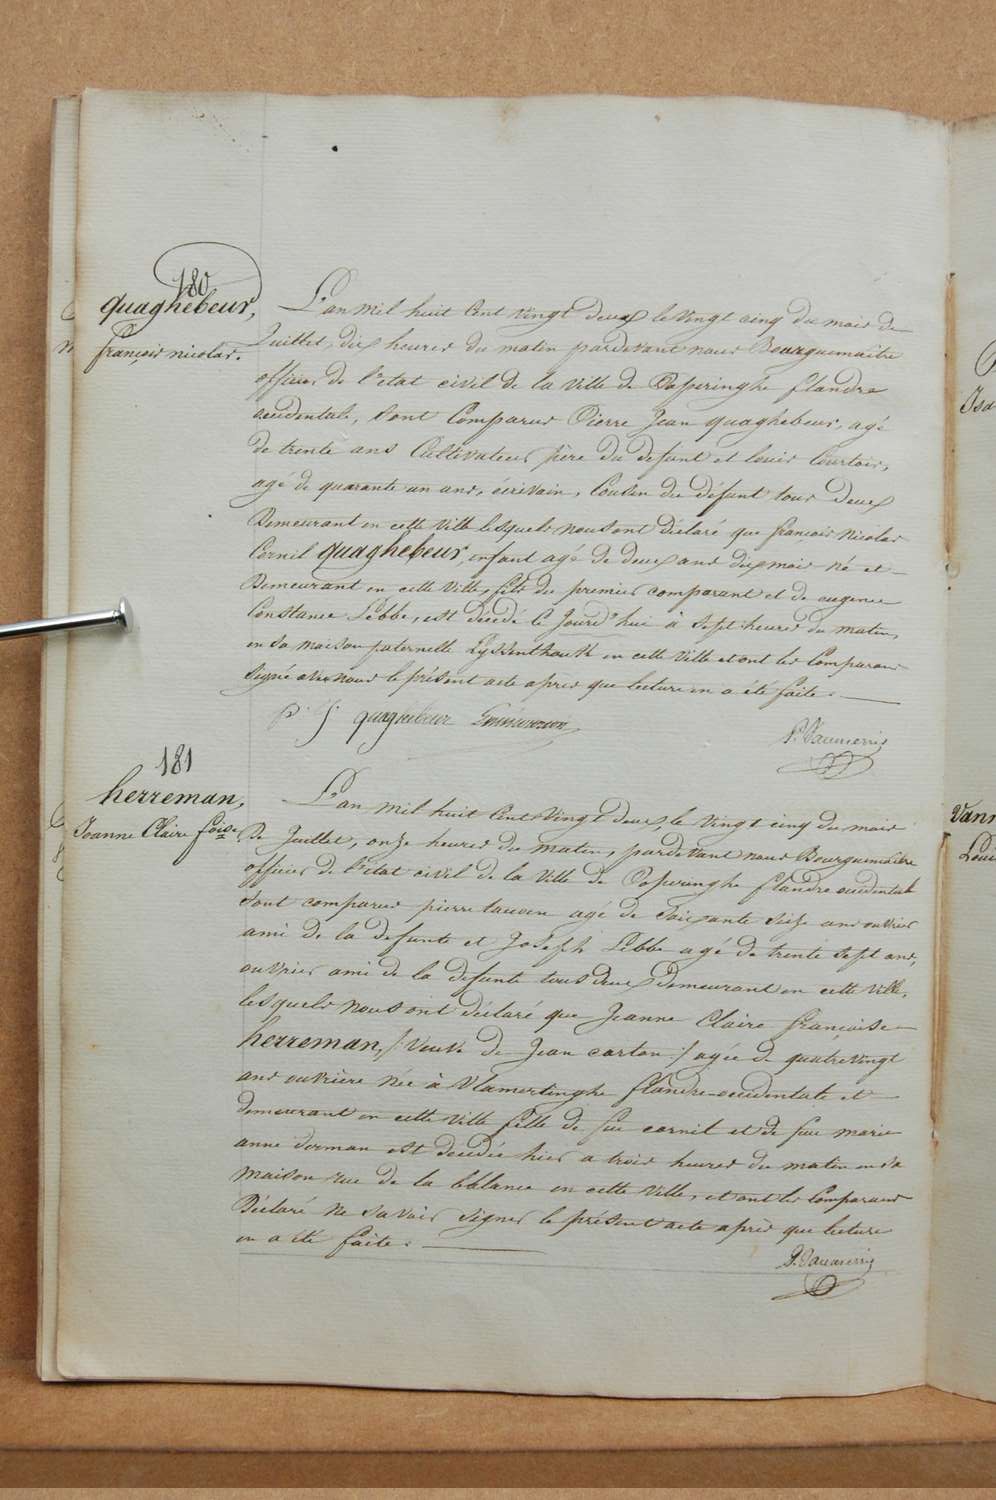 180
quaghebeur,
françois nicolas.
L'an mil huit Cent vingt deux le vingt cinq du mois de
Juillet, dix heures du matin pardevant nous Bourguemaître
officier de l'etat civil de la ville de Poperinghe flandre
occidentale, sont Comparus Pierre Jean quaghebeur, agé
de trente ans Cultivateur père du defunt et louis Courtois,
agé de quarante un ans, écrivain, Cousin du défunt tous deux
Demeurant en cette ville lesquels nous ont déclaré que françois Nicolas
Cornil quaghebeur, enfant agé de deux ans dix mois né et
Demeurant en cette ville, fils du premier comparant et de eugenie
Constance Lebbe, est décédé ce Jourd'hui à sept heures du matin,
en sa maison paternelle en cette ville et ont les Comparans
signé avec nous le présent acte apres que lecture en a été faite.
P. J. quaghebeur
181
herreman,
Jeanne Claire foise.
L'an mil huit Cent Vingt deux, le vingt cinq du mois
De Juillet, onze heures du matin, pardevant nous Bourguemaître
officier de l'etat civil de la ville de Poperinghe flandre occidentale
sont comparus pierre lauwen agé de Soixante seize ans ouvrier
ami de la defunte et Joseph Lebbe agé de trente sept ans,
ouvrier ami de la defunte tous deux Demeurant en cette ville,
lesquels nous ont déclaré que Jeanne Claire françoise
herreman, /: veuve de Jean carton :/ agée de quatrevingt
ans ouvrière née à Vlamertinghe flandre-occidentale et
demeurant en cette ville fille de feu cornil et de feu marie
anne dorman est decedée hier a trois heures du matin en sa
maison rue de la balance en cette ville, et ont les Comparans
Déclaré ne savoir signer le présent acte après que lecture
en a été faite.